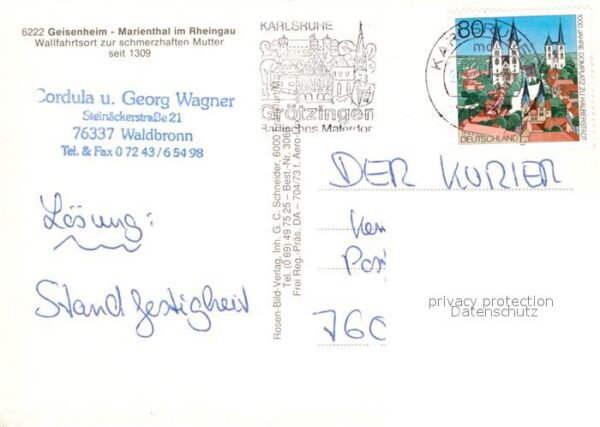 6222 Geisenheim - Marienthal im Rheingau
Wallfahrtsort zur schmerzhaften Mutter
seit 1309
Cordula u. Georg Wagner
Steinäckerstraße 21
76337 Waldbronn
Tel. & Fax 0 72 43 / 6 54 98
Lösung:
Standfestigkeit
KARLSRUHE
Grötzingen
Badisches Malerdorf
Rosen-Bild-Verlag, Inh. G. C. Schneider, 6000
Tel. (0 69) 49 75 25 – Best.-Nr. 306
Frei Reg.-Präs. DA – 704/73 f. Aero
80
1000 JAHRE DOMPLATZ ZU HALBERSTADT
DEUTSCHLAND
DER KURIER
Post
760
privacy protection
Datenschutz